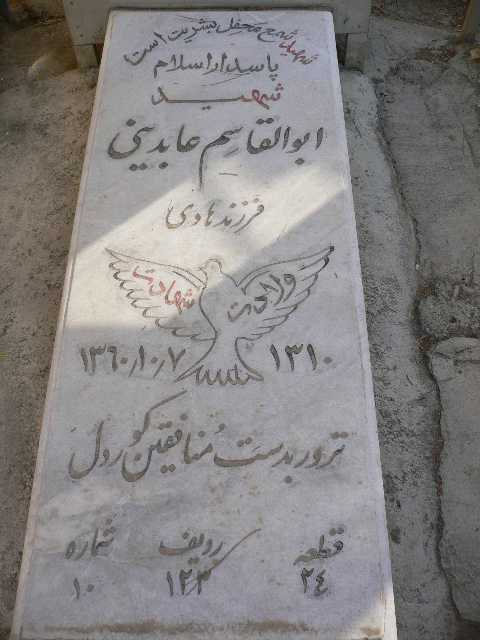 شهید شمع محفل بشریت است
پاسدار اسلام
شهید
ابوالقاسم عابدینی
فرزند هادی
ولادت شهادت
۱۳۱۰ ۱۳۶۰/۱۰/۷
ترور بدست منافقین کوردل
قطعه ردیف شماره
۲٤ ۱۲۳ ۱۰